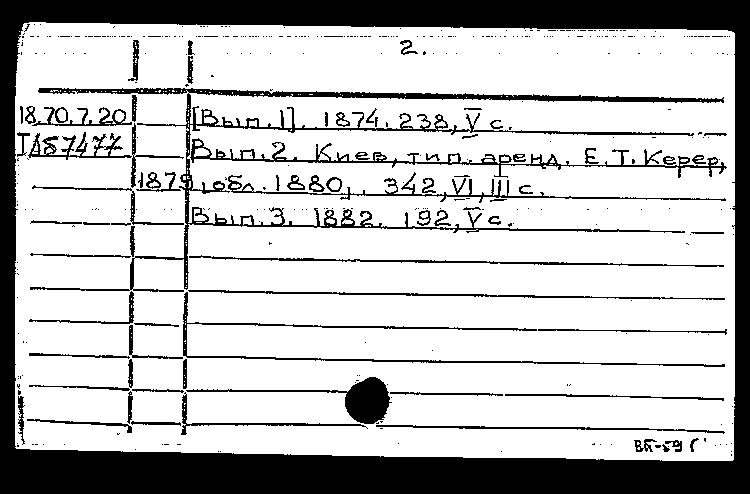 2.
18.70.7.20 [Вып. 1]. 1874. 238, V с.
Вып. 2. Киев, тип. аренд. Е. Т. Керер,
1879, обл. 1880]. 342, VI, III с.
Вып. 3. 1882. 192, V с.